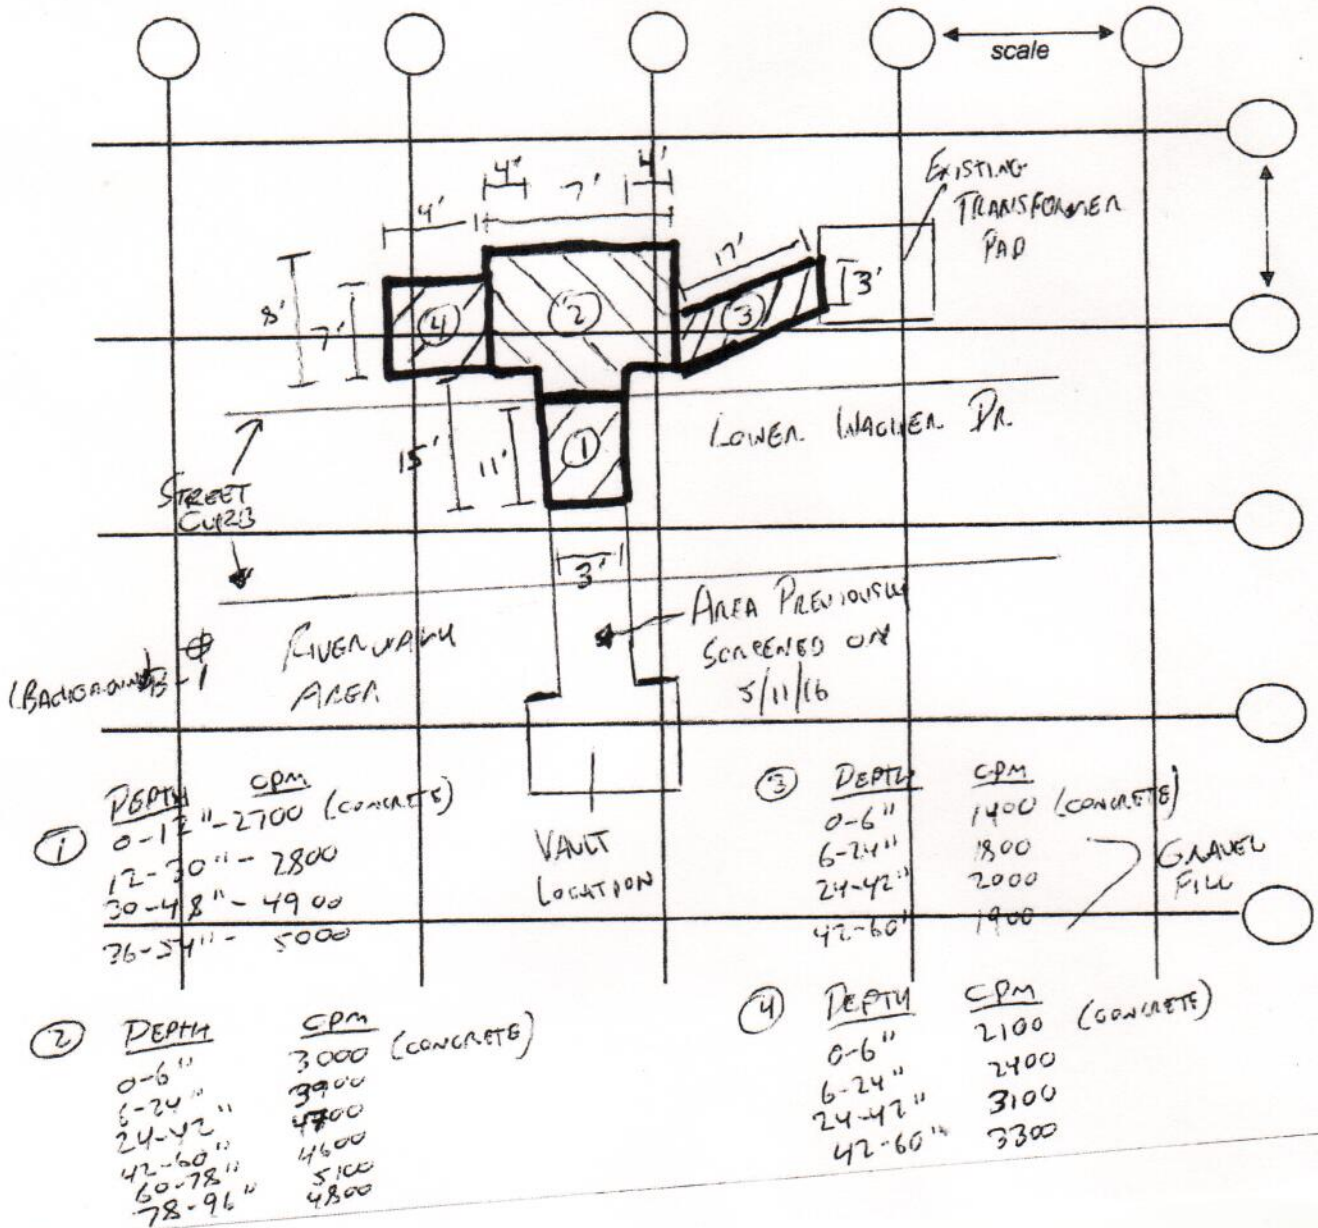 scale
4' 7' 4'
4'
EXISTING
TRANSFORMER
PAD
17'
3'
8'
7'
4
2
3
LOWER WACKER DR.
15'
11'
1
STREET
CURB
3'
AREA PREVIOUSLY
SCREENED ON
5/11/16
RIVERWALK
AREA
(BACKGROUND) B-1
VAULT
LOCATION
1 DEPTH CPM
0-12"-2700 (CONCRETE)
12-30"-2800
30-48"-4900
36-54"-5000
3 DEPTH CPM
0-6" 1400 (CONCRETE)
6-24" 1800
24-42" 2000
42-60" 1900
GRAVEL
FILL
2 DEPTH CPM
0-6" 3000 (CONCRETE)
6-24" 3900
24-42" 4700
42-60" 4600
60-78" 5100
78-96" 4800
4 DEPTH CPM
0-6" 2100 (CONCRETE)
6-24" 2400
24-42" 3100
42-60" 3300